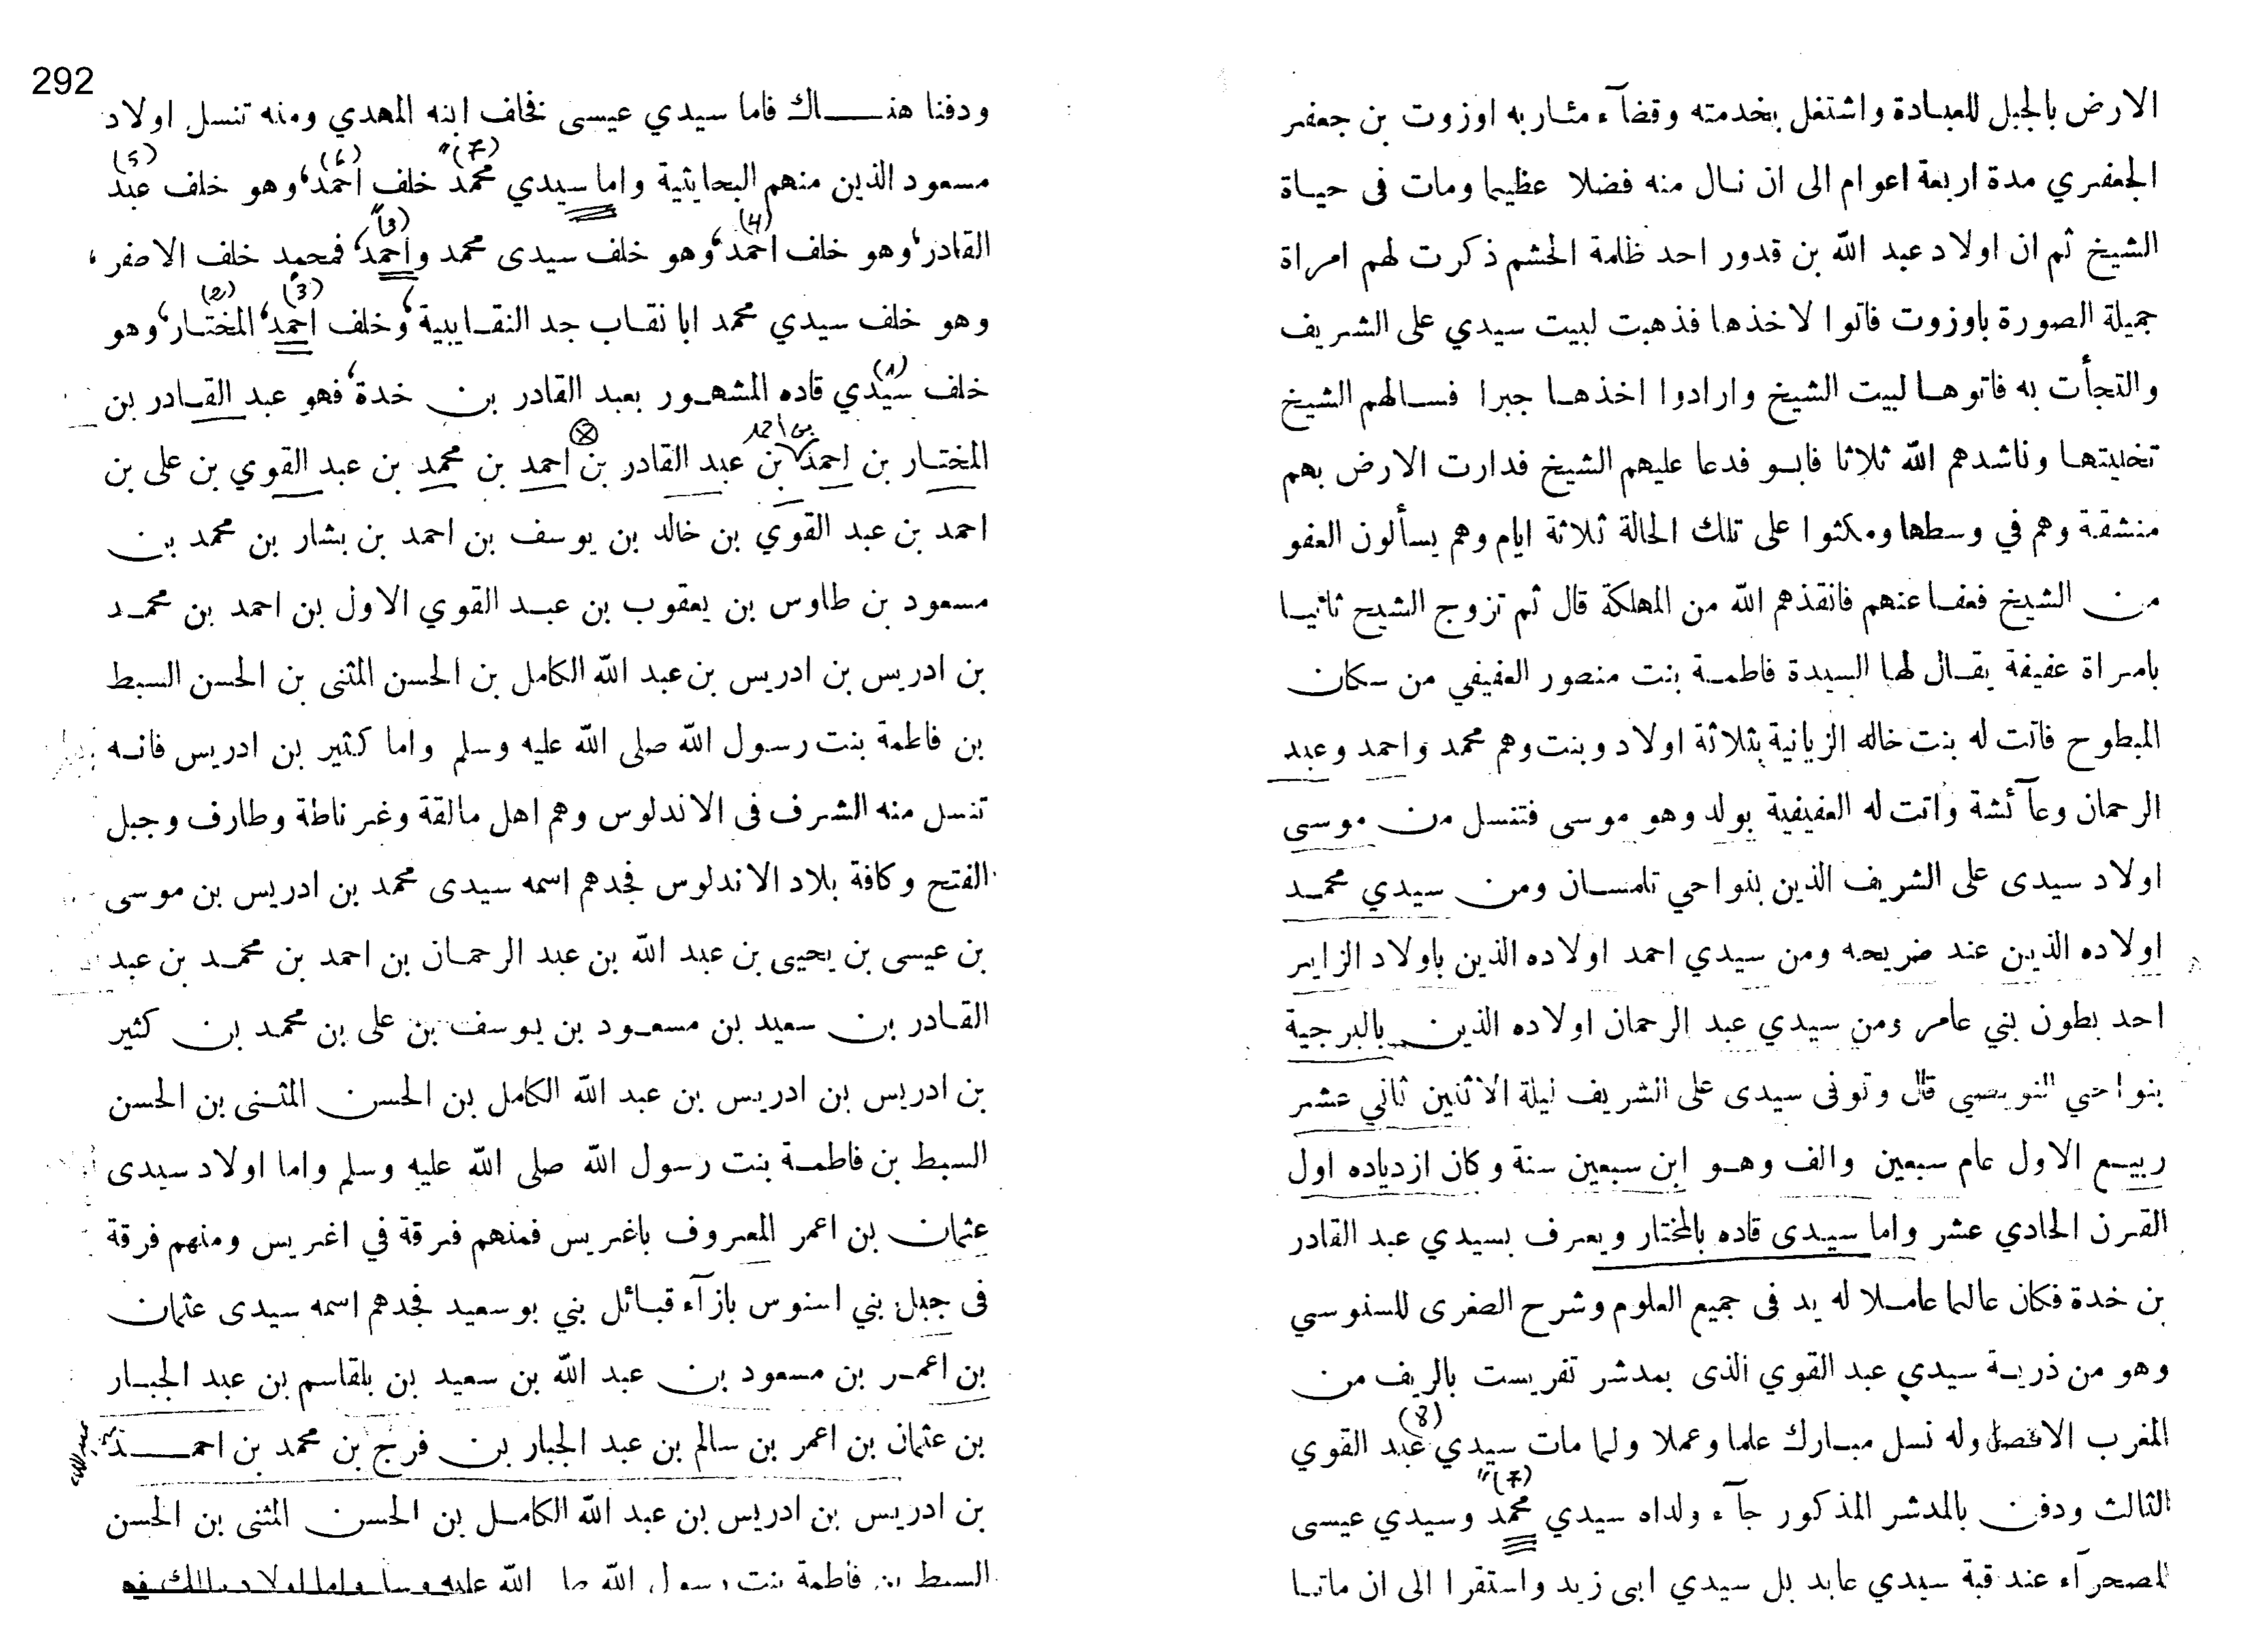 الارض بالجبل للعبادة واشتغل بخدمته وقضآء مئاربه اوزوت بن جعفر
الجعفري مدة اربعة اعوام الى ان نال منه فضلا عظيما ومات فى حياة
الشيخ ثم ان اولاد عبد الله بن قدور احد ظلمة الحشم ذكرت لهم امراة
جميلة الصورة باوزوت فاتوا لاخذها فذهبت لبيت سيدي على الشريف
والتجأت به فاتوها لبيت الشيخ وارادوا اخذها جبرا فسالهم الشيخ
تخليتها وناشدهم الله ثلاثا فابو فدعا عليهم الشيخ فدارت الارض بهم
منشقة وهم في وسطها ومكثوا على تلك الحالة ثلاثة ايام وهم يسألون العفو
من الشيخ فعفا عنهم فانقذهم الله من المهلكة قال ثم تزوج الشيخ ثانيا
بامراة عفيفة يقال لها السيدة فاطمة بنت منصور العفيفي من سكان
المبطوح فاتت له بنت خاله الزيانية بثلاثة اولاد وبنت وهم محمد واحمد وعبد
الرحمان وعآئشة واتت له العفيفية بولد وهو موسى فتنسل من موسى
اولاد سيدى على الشريف الذين بنواحي تلمسان ومن سيدي محمد
اولاده الذين عند ضريحه ومن سيدي احمد اولاده الذين باولاد الزاير
احد بطون بني عامر ومن سيدي عبد الرحمان اولاده الذين بالبرجية
بنواحي قال وتوفى سيدى على الشريف ليلة الاثنين ثاني عشر
ربيع الاول عام سبعين والف وهو ابن سبعين سنة وكان ازدياده اول
القرن الحادي عشر واما سيدى قاده بالمختار ويعرف بسيدي عبد القادر
بن خدة فكان عالما عاملا له يد فى جميع العلوم وشرح الصغرى للسنوسي
وهو من ذرية سيدي عبد القوي الذى بمدشر تفريست بالريف من
المغرب الاقصى وله نسل مبارك علما وعملا ولما مات سيدي عبد القوي (8)
الثالث ودفن بالمدشر المذكور جآء ولداه سيدي محمد (7)" وسيدي عيسى
للصحرآء عند قبة سيدي عابد بل سيدي ابى زيد واستقرا الى ان ماتا
292
ودفنا هناك فاما سيدي عيسى فخلف ابنه المهدي ومنه تنسل اولاد
مسعود الذين منهم البحايثية واما سيدي محمد (7)" خلف احمد (6) وهو خلف عبد (5)
القادر وهو خلف احمد (4) وهو خلف سيدى محمد واحمد (3)" فمحمد خلف الاصفر
وهو خلف سيدي محمد ابا نقاب جد النقايبية وخلف احمد (3) المختار (2) وهو
خلف سيدي (1) قاده المشهور بعبد القادر بن خدة فهو عبد القادر بن
المختار بن احمد بن احمد بن عبد القادر بن احمد بن محمد بن عبد القوي بن على بن
احمد بن عبد القوي بن خالد بن يوسف بن احمد بن بشار بن محمد بن
مسعود بن طاوس بن يعقوب بن عبد القوي الاول بن احمد بن محمد
بن ادريس بن ادريس بن عبد الله الكامل بن الحسن المثنى بن الحسن السبط
بن فاطمة بنت رسول الله صلى الله عليه وسلم واما كثير بن ادريس فانه
تنسل منه الشرف فى الاندلوس وهم اهل مالقة وغرناطة وطارف وجبل
الفتح وكافة بلاد الاندلوس فجدهم اسمه سيدى محمد بن ادريس بن موسى
بن عيسى بن يحيى بن عبد الله بن عبد الرحمان بن احمد بن محمد بن عبد
القادر بن سعيد بن مسعود بن يوسف بن على بن محمد بن كثير
بن ادريس بن ادريس بن عبد الله الكامل بن الحسن المثنى بن الحسن
السبط بن فاطمة بنت رسول الله صلى الله عليه وسلم واما اولاد سيدى
عثمان بن اعمر المعروف باغريس فمنهم فرقة في اغريس ومنهم فرقة
فى جبل بني اسنوس بازآء قبائل بني بوسعيد فجدهم اسمه سيدى عثمان
بن اعمر بن مسعود بن عبد الله بن سعيد بن بلقاسم بن عبد الجبار
بن عثمان بن اعمر بن سالم بن عبد الجبار بن فرج بن محمد بن احمد
بن ادريس بن ادريس بن عبد الله الكامل بن الحسن المثنى بن الحسن
السبط بن فاطمة بنت رسول الله صلى الله عليه وسلم واما اولاد